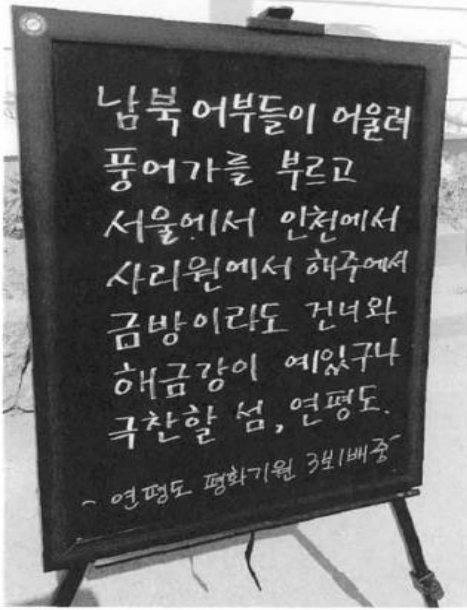 남북 어부들이 어울려
풍어가를 부르고
서울에서 인천에서
사리원에서 해주에서
금방이라도 건너와
해금강이 예있구나
극찬할 섬, 연평도.
- 연평도 평화기원 3보1배중 -